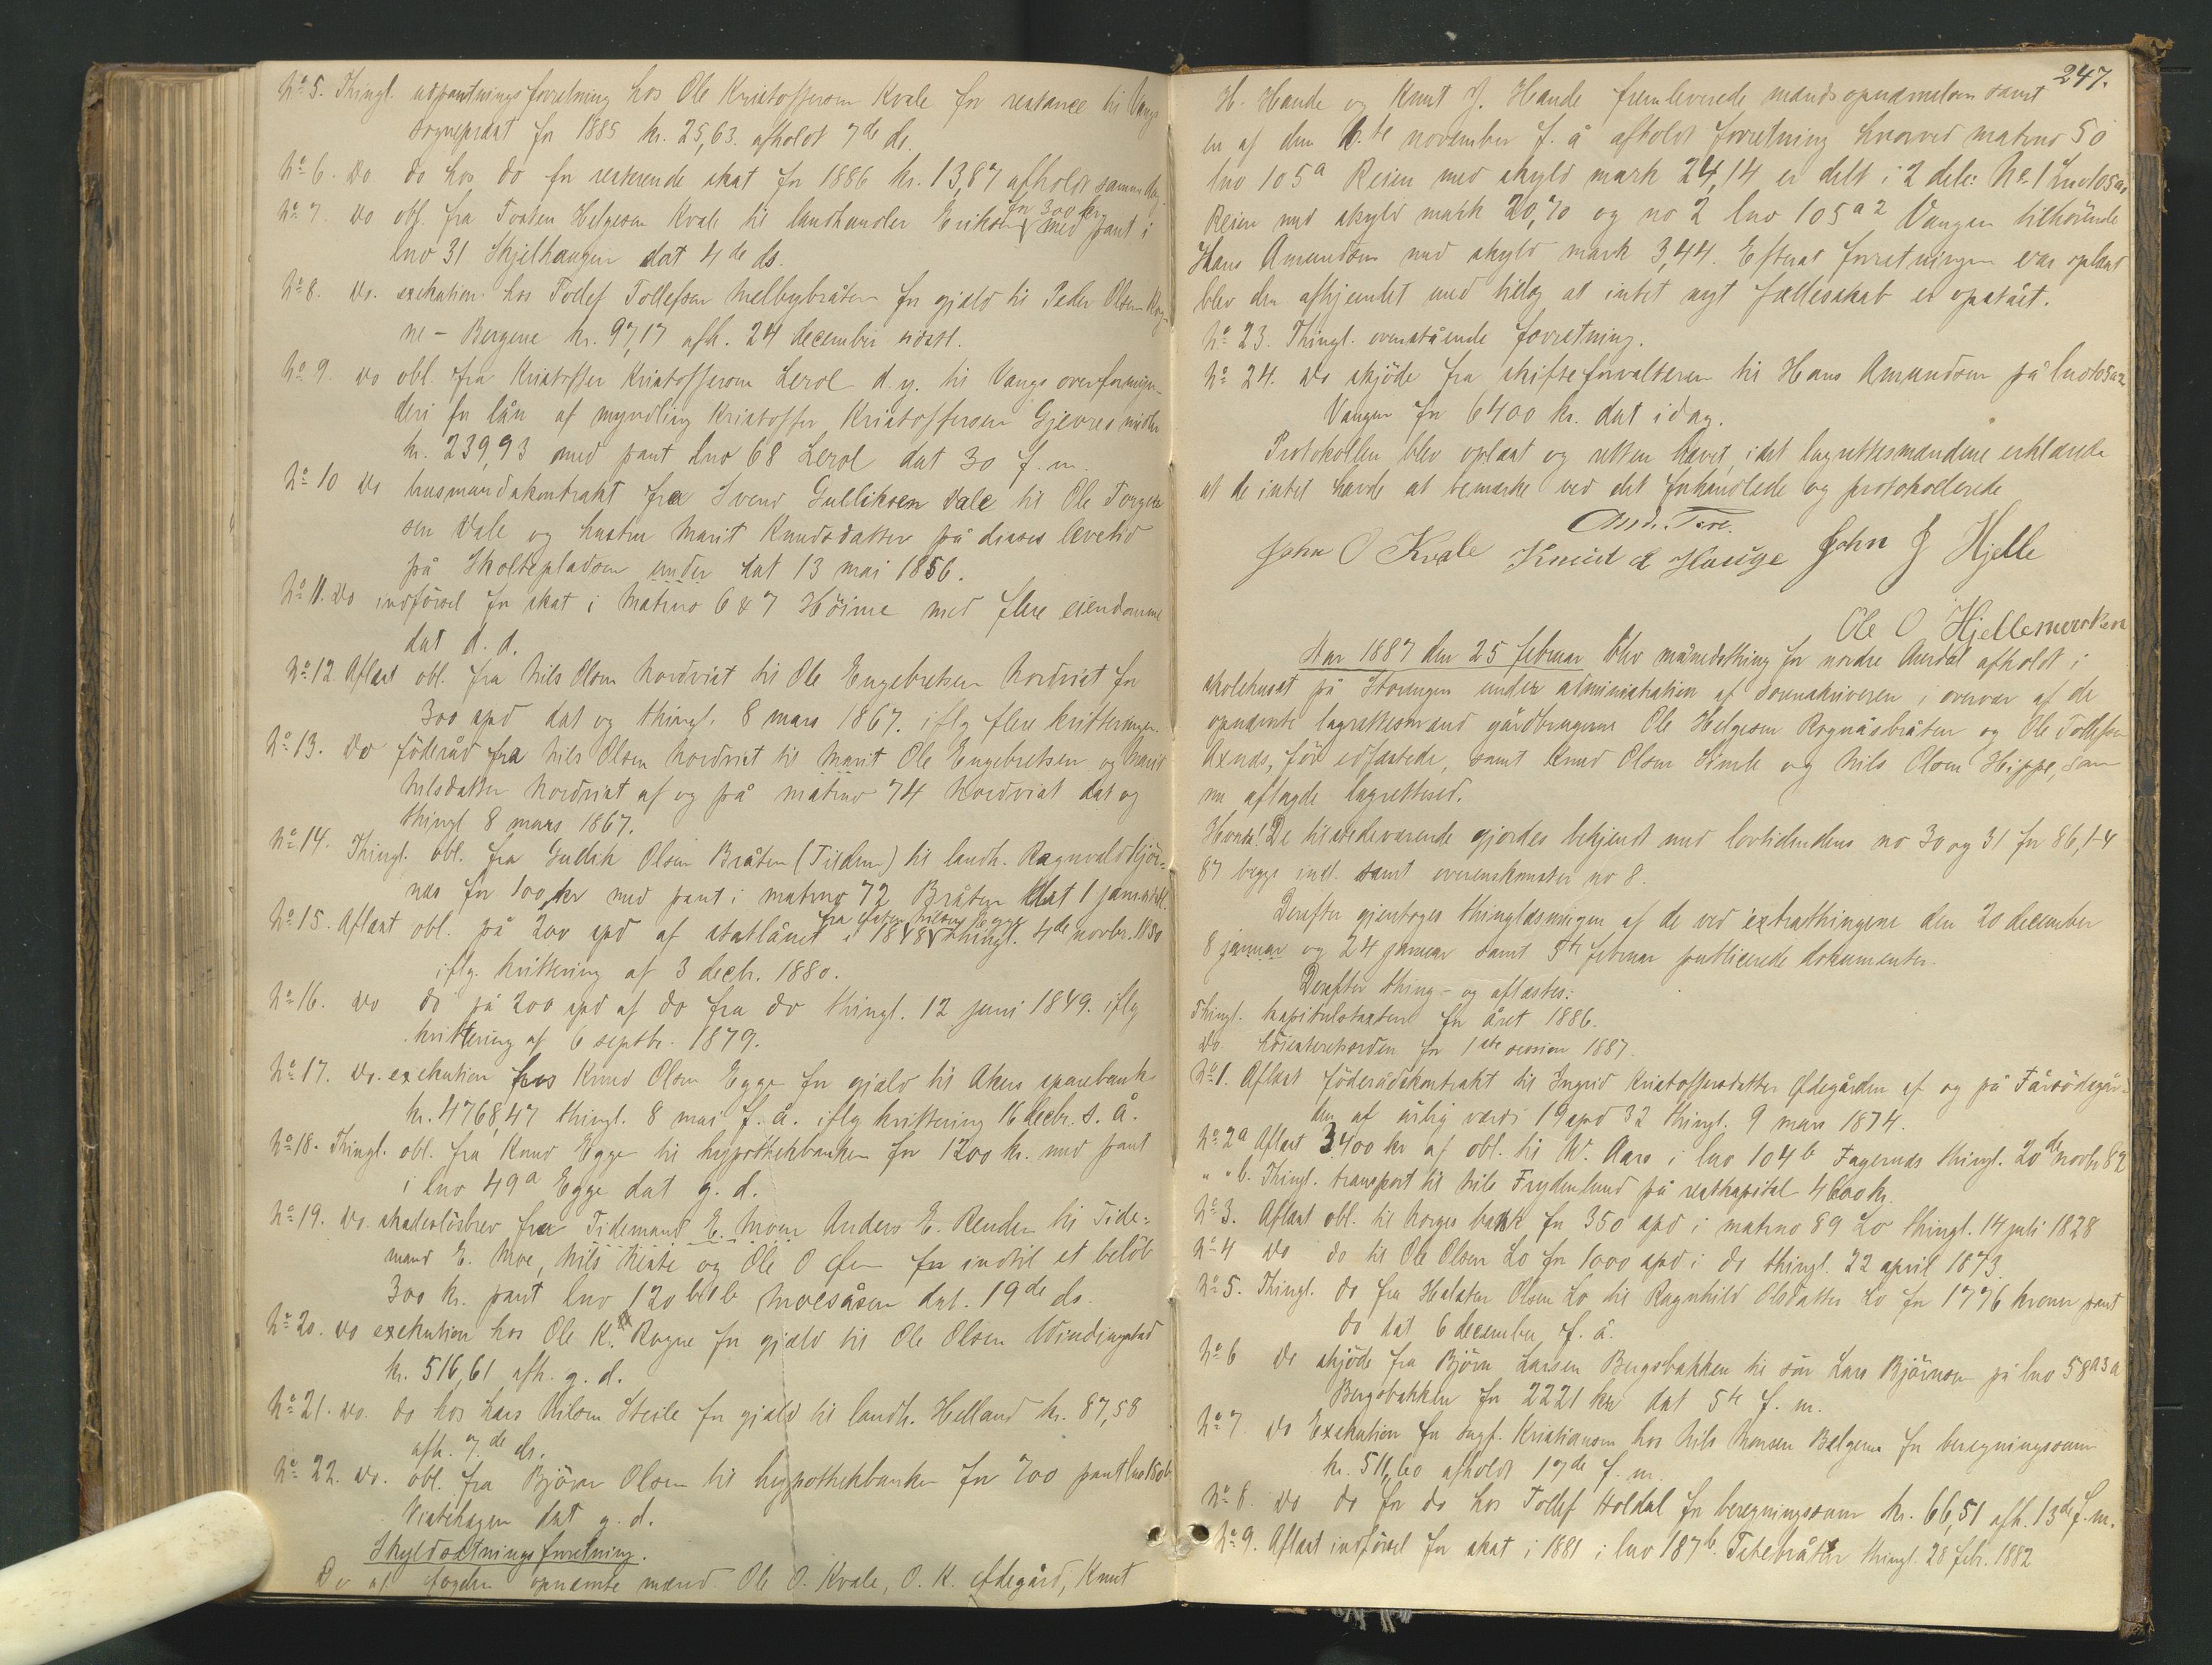 No 5. Thingl. udpantningsforretning hos Ole Kristoffersen Kvale for restance til Vangs
sogneprest for 1885 kr. 25,63. afholdt 7de ds.
No 6. Do do hos do for resterende skat for 1886 kr. 13,87 afholdt samme dag.
No 7. Do obl. fra Torsten Helgesen Kvale til landhandler Eriksen for 300 kr. med pant i
lno 31 Skjelhaugen dat 4de ds.
No 8. Do. exekution hos Tollef Tollefsen Melbybråten for gjæld til Peder Olsen Rog-
ne - Bergene kr. 97,17 afh. 24 december sidstl.
No 9. Do obl. fra Kristoffer Kristoffersen Lerol d. y. til Vangs overformyn-
deri for lån af myndling Kristoffer Kristoffersen Gjevres midler
kr. 239,93 med pant lno 68 Lerol dat 30 f. m.
No 10 Do husmandskontrakt fra Svend Gulliksen Dale til Ole Torger-
sen Dale og hustru Marit Knudsdatter på disses levetid
på Skoltepladsen under dat 13 mai 1856.
No 11. Do indförsel for skat i matrno 6 & 7 Höime med flere eiendomme
dat d. d.
No 12 Aflæst obl. fra Nils Olsen Nordvist til Ole Engebretsen Nordvist for
300 spd dat og thingl. 8 mars 1867. iflg flere kvitteringer.
No 13. Do föderåd fra Nils Olsen Nordvist til Marit Ole Engebretsen og Marit
Nilsdatter Nordvist af og på matrno 74 Nordvist dat og
thingl 8 mars 1867.
No 14. Thingl. obl. fra Gudrik Olsen Bråten (Tilden) til landh. Ragnvald Kjör-
næs for 100 kr med pant i matrno 72 Bråten dat 1 januar
No 15. Aflæst obl. på 200 spd af statlånet i 1848 fra Nilsen Egge thingl. 4de novbr. 1850
iflg. kvittering af 3 decbr. 1880.
No 16. Do do på 200 spd af do fra do thingl. 12 juni 1849. iflg
kvittering af 6 septbr. 1879.
No 17. Do. exekution hos Knud Olsen Egge for gjæld til Akers sparebank
kr. 4768,47 thingl. 8 mai f. å. iflg kvittering 16 decbr. s. å.
No 18. Thingl. obl. fra Knud Egge til hypothekbanken for 1200 kr. med pant
i lno 49a Egge dat g. d.
No 19. Do. skadeslösbrev fra Tidemand E. Moen Anders E. Renden til Tide-
mand E. Moe, Nils Keste og Ole O for indtil et belöb
300 kr. pant lno 120 Moesåsen dat. 19de ds.
No 20. Do exekution hos Ole K. Rogne for gjæld til Ole Olsen Windingstad
kr. 516,61 afh. g. d.
No 21. Do. do hos Lars Nilsen Steile for gjæld til landh. Helland kr. 87,58
afh. 7de ds.
No 22. Do. obl. fra Björn Olsen til hypothekbanken for 700 pant lno 150b
Vestehagen dat g. d.
Skyldsætningsforretning.
De af fogden opnævnte mænd Ole O. Kvale, O. K. Ødegård, Knut
247.
H. Hande og Knut J. Hande fremleverede mandsopnævnelsen samt
en af dem 6.te november f. å afholdt forretning hvorved matrno 50
lno 105a Reien med skyld mark 24,14 er delt i 2 dele: No 1 Lno 105a1
Reien med skyld mark 20,70 og no 2 lno 105a2 Vangen tilhörende
Hans Amundsen med skyld mark 3,44. Efterat forretningen var oplæst
blev den afhjemlet med tillæg at intet nyt fællesskab er opstået.
No 23. Thingl. ovenstående forretning.
No 24. Do skjöde fra skifteforvalteren til Hans Amundsen på lno 105a2
Vangen for 6400 kr. dat idag.
Protokollen blev oplæst og retten hævet, idet lagrettesmændene erklærede
at de intet havde at bemærke ved det forhandlede og protokollerede
And. Fare.
John O Kvale Knud d Hauge John J Hjelle
Ole O Hjellemoersken
Aar 1887 den 25 februar blev månedsthing for nordre Aurdal afholdt i
skolehuset på Storengen under administration af sorenskriveren, i overvær af de
opnævnte lagrettesmænd gårdbrugerne Ole Helgesen Rognåsbråten og Ole Tollefsen
Axnæs, för edfæstede, samt Knud Olsen Strude og Nils Olsen Hippe, som
nu aflagde lagrettesed.
Hvorda! De tilstedeværende gjordes bekjendt med lovtidendens no 30 og 31 for 86, 1-4
87 begge incl. samt overenskomster no 8.
Derefter gjentoges thinglæsningen af de ved extrathingene den 20 december
8 januar og 24 januar samt 5te februar publicerede dokumenter.
Derefter thing- og aflæstes:
Thingl. kapitulstaxten for året 1886.
Do höiesteretsorden for 1ste session 1887.
No 1. Aflæst föderådskontrakt til Ingrid Kristoffersdatter Ødegården af og på Fårsödegår-
den af årlig værdi 19 spd 32 thingl. 9 mars 1874.
No 2a Aflæst 3400 kr af obl. til W. Aars i lno 104b Fagernæs thingl. 20de novbr 82
" " b. Thingl. transport til Nils Frydenlund på restkapital 4600 kr.
No 3. Aflæst obl. til Norges bank for 350 spd i matrno 89 Lo thingl. 14 juli 1828
No 4 Do do til Ole Olsen Lo for 1000 spd i do thingl. 22 april 1873.
No 5. Thingl. do fra Halsten Olsen Lo til Ragnhild Olsdatter Lo for 1776 kroner pant
do dat 6 december f. å.
No 6 Do skjöde fra Björn Larsen Bergsbakken til sön Lars Björnsen på lno 58a3a
Bergsbakken for 2221 kr dat 5te f. m.
No 7. Do Exekution for sagf. Kristiansen hos Nils Monsen Belgerne for beregningssum
kr. 511,60 afholdt 17de f. m.
No 8. Do do for do hos Tollef Holdal for beregningssum kr. 66,51 afh. 13de f. m.
No 9. Aflæst indförsel for skat i 1881 i lno 187b Titebråten thingl. 28 feb. 1882